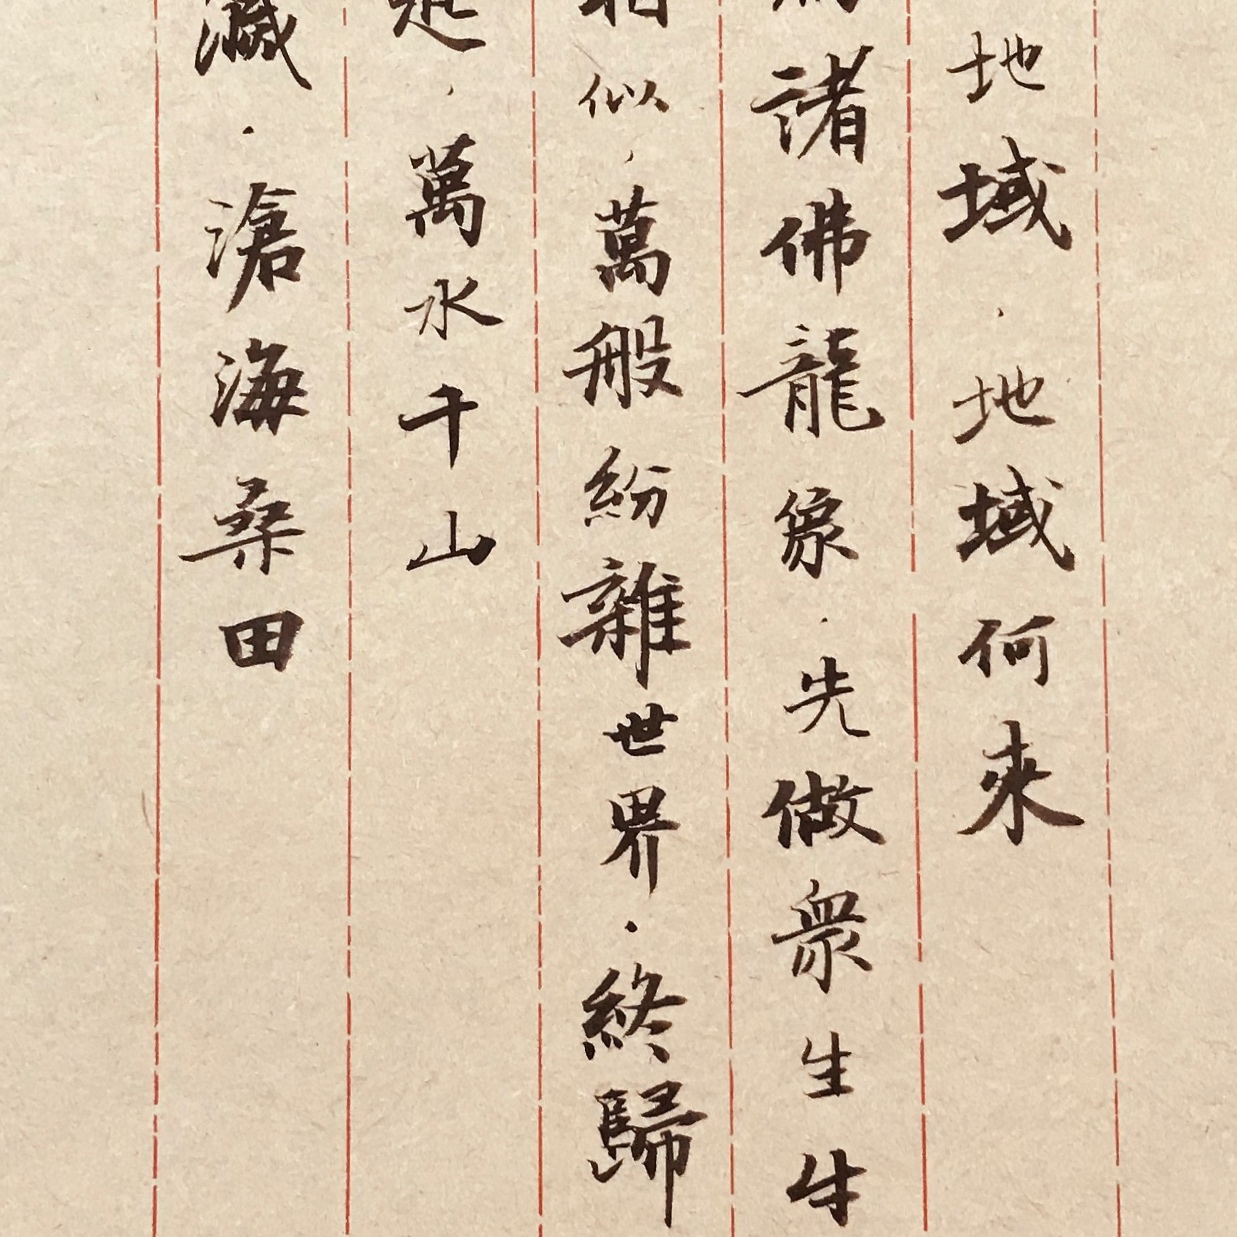 地域·地域何来
諸佛龍象·先做衆生牛
似·萬般紛雜世界·終歸
·萬水千山
滅·滄海桑田